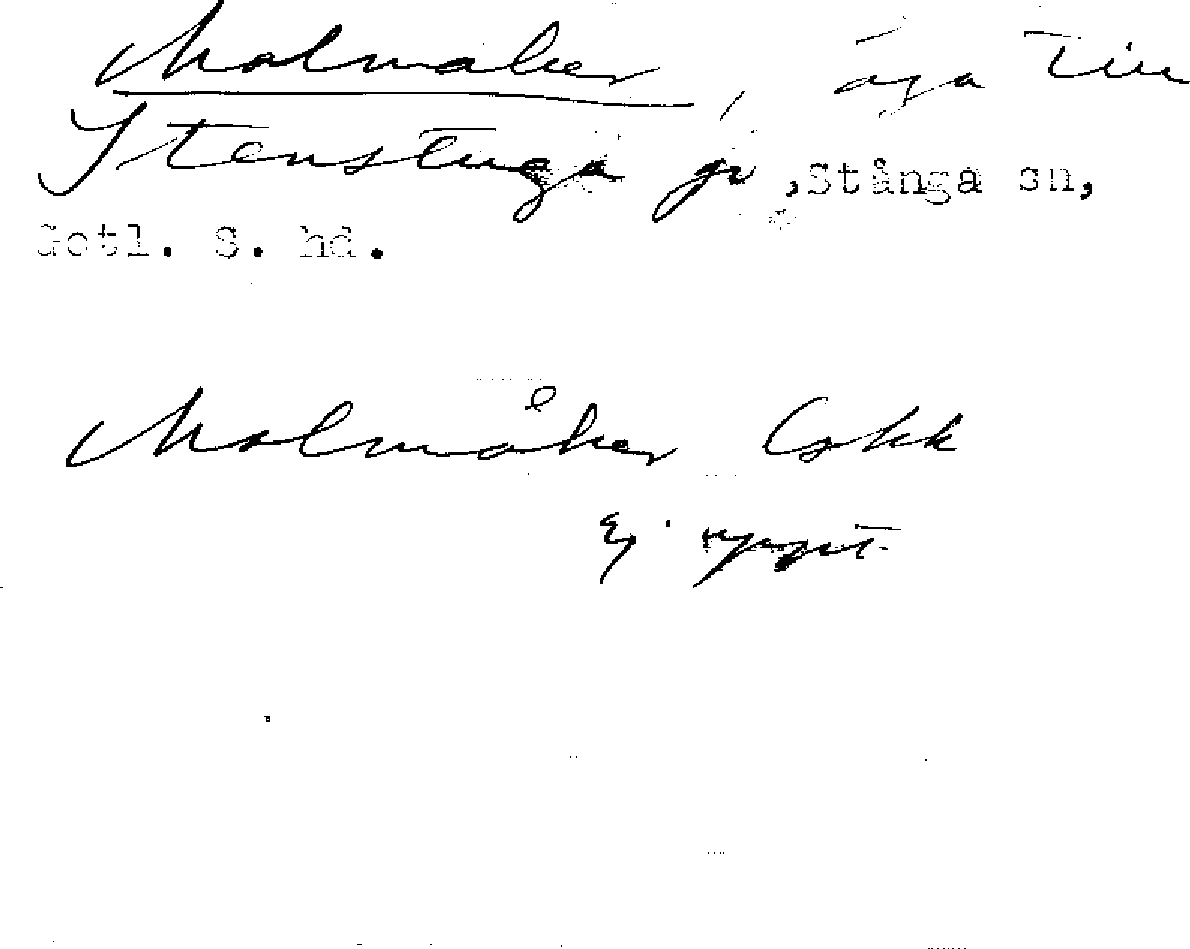 Malmåker, äga till
Stenstuga gd, Stånga sn,
Gotl. S. hd.
Malmåker Gskk
Ej uppg.